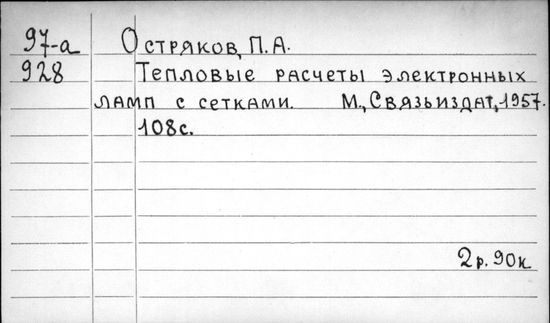 97-а Остряков, П.А.
928 Тепловые расчеты электронных
ламп с сетками. М., Связьиздат, 1957.
108с.
2р. 90к